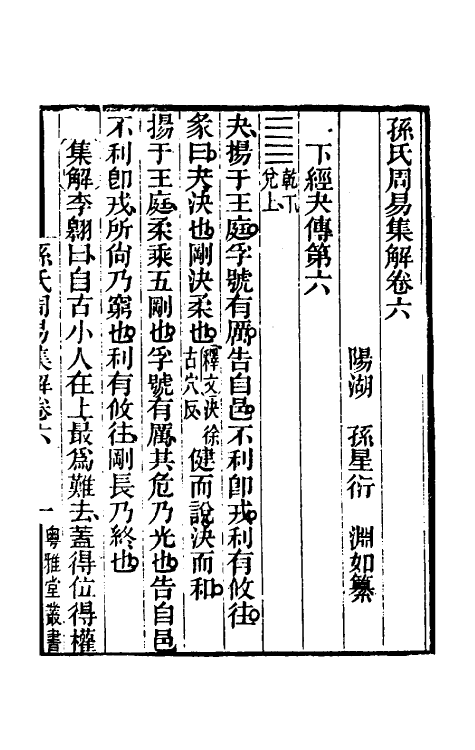 孫氏周易集解卷六
陽湖 孫星衍 淵如纂
下經夬傳第六
乾下
兌上
夬揚于王庭孚號有厲告自邑不利卽戎利有攸往
彖曰夬決也剛決柔也釋文決徐古穴反健而說決而和
揚于王庭柔乘五剛也孚號有厲其危乃光也告自邑
不利卽戎所尙乃窮也利有攸往剛長乃終也
集解李翺曰自古小人在上最爲難去蓋得位得權
孫氏周易集解卷六 一 粵雅堂叢書